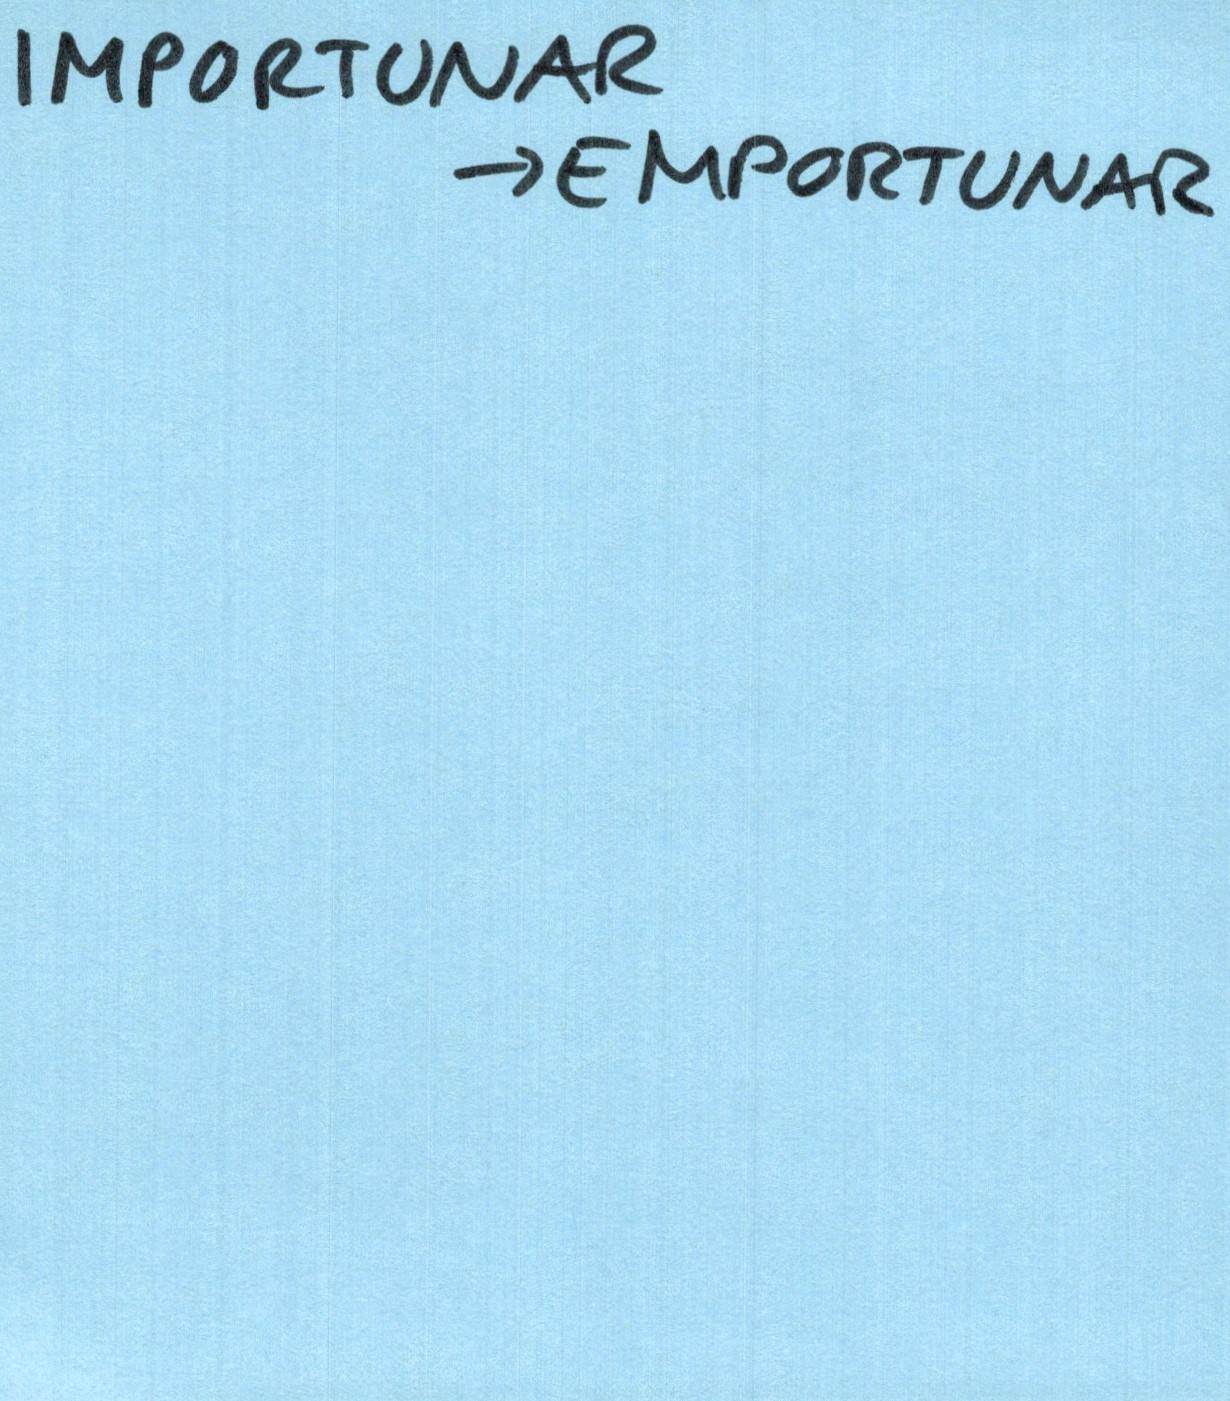 IMPORTUNAR
→EMPORTUNAR